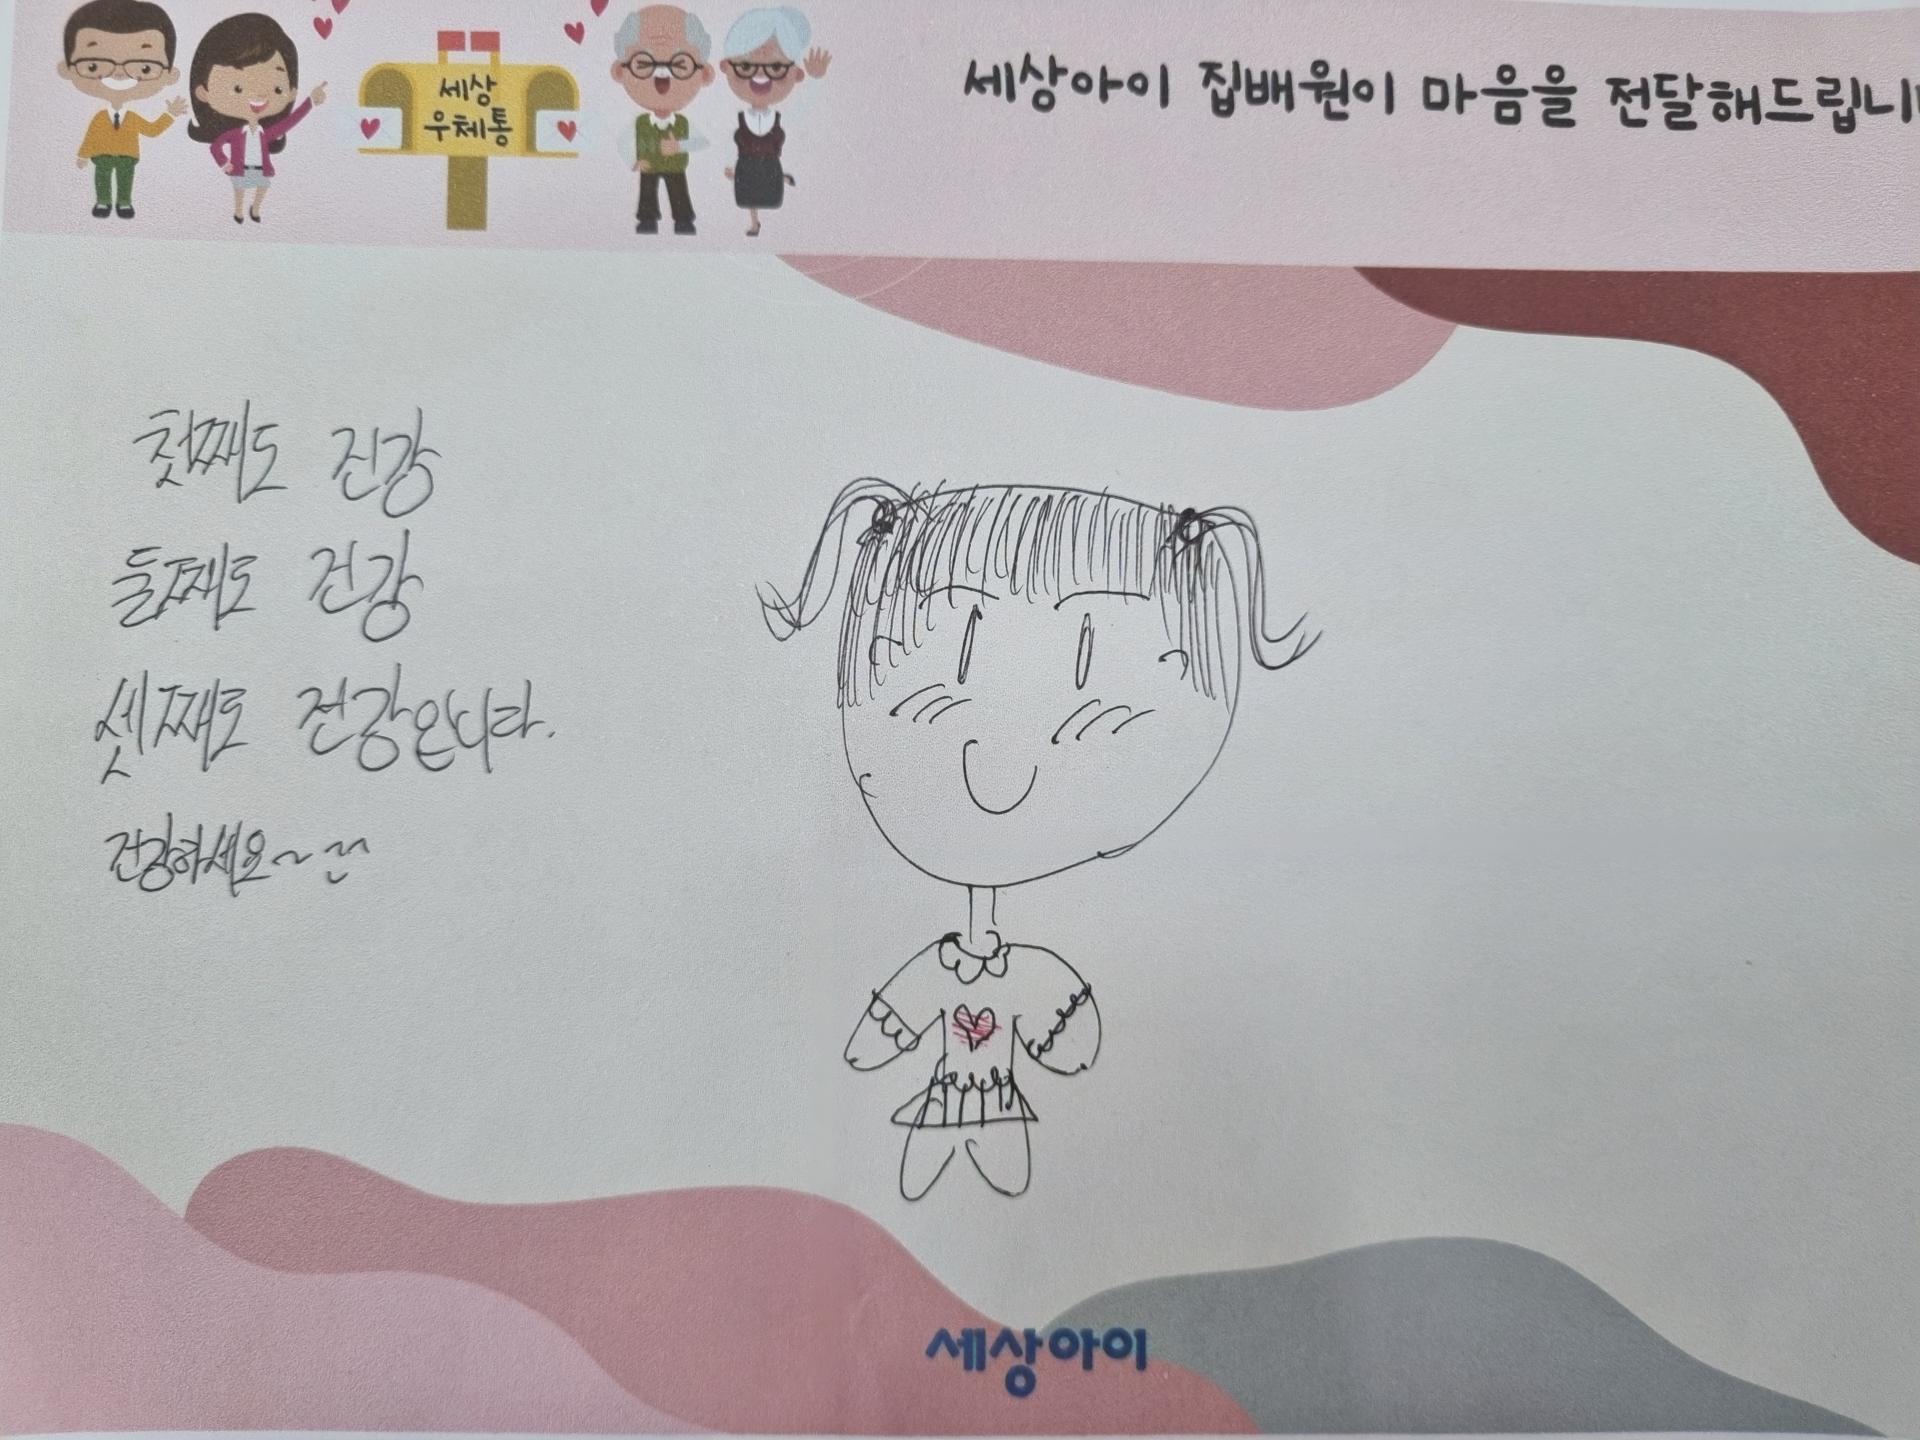 세상
우체통
세상아이 집배원이 마음을 전달해드립니
첫째도 건강
둘째도 건강
셋째도 건강입니다.
건강하세요~ ^^
세상아이